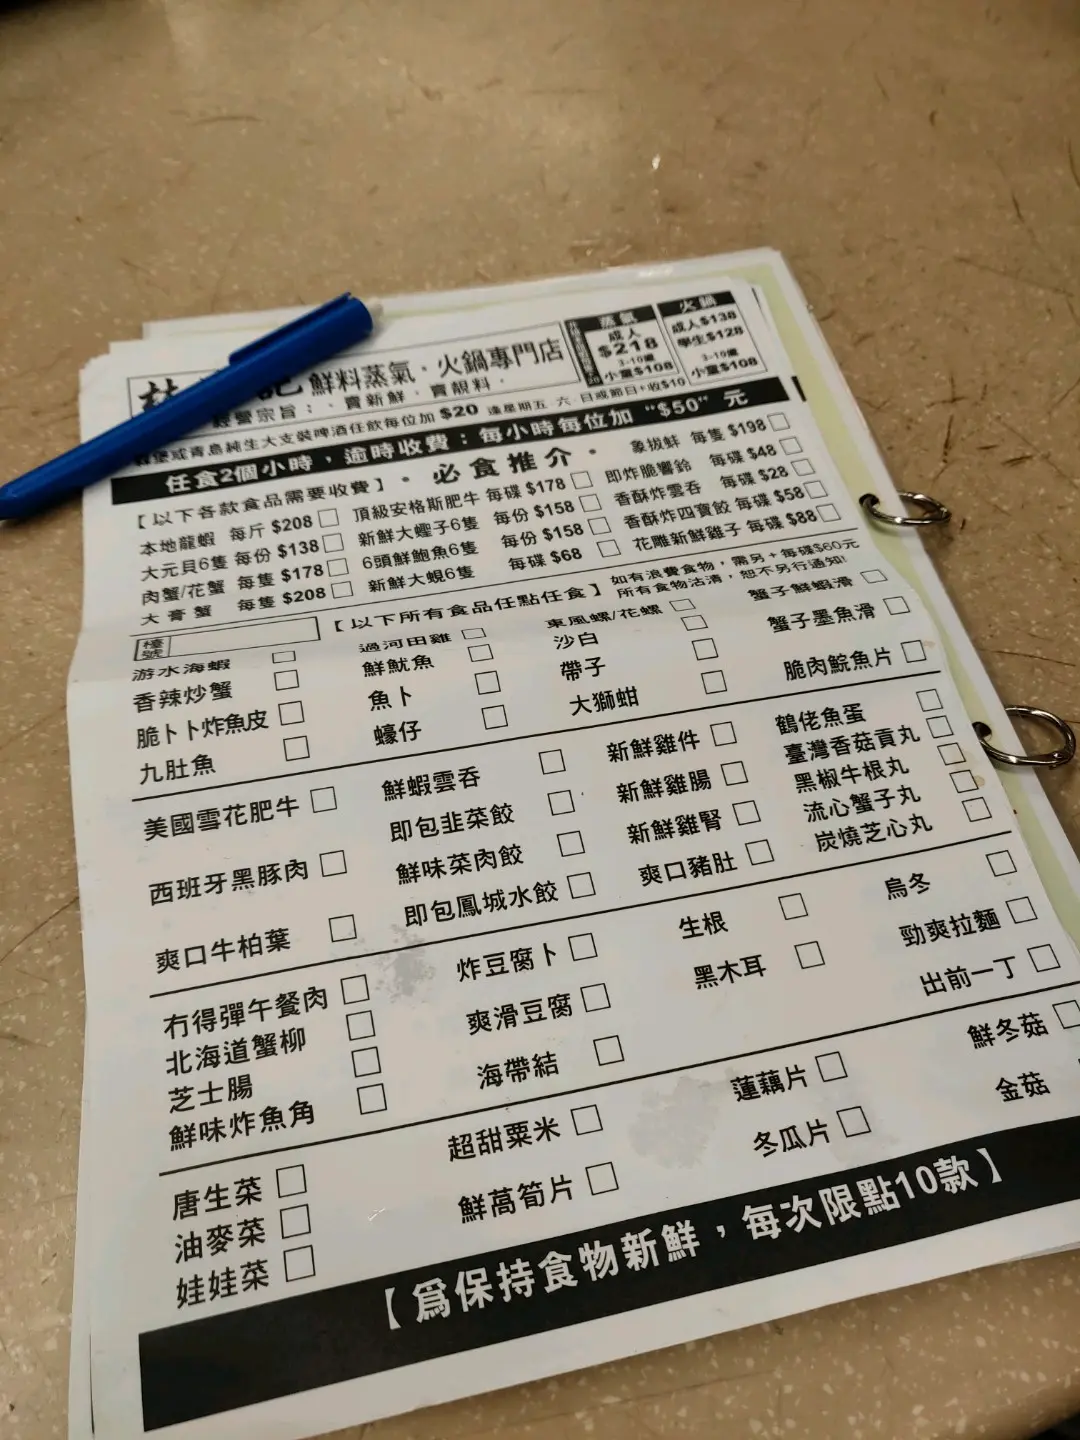 記 鮮料蒸氣·火鍋專門店
經營宗旨：·賣新鮮·賣靚料·
蒸氣
成人
$218
3-10歲
小童$108
火鍋
成人$138
學生$128
3-10歲
小童$108
堡或青島純生大支裝啤酒任飲每位加 $20 逢星期五 六 日或節日+收$10
任食2個小時，逾時收費：每小時每位加 “$50” 元
【以下各款食品需要收費】· 必食推介·
本地龍蝦 每斤 $208 □ 頂級安格斯肥牛 每碟 $178 □ 象拔蚌 每隻 $198 □
大元貝6隻 每份 $138 □ 新鮮大蟶子6隻 每份 $158 □ 即炸脆響鈴 每碟 $48 □
肉蟹/花蟹 每隻 $178 □ 6頭鮮鮑魚6隻 每份 $158 □ 香酥炸雲吞 每碟 $28 □
大膏蟹 每隻 $208 □ 新鮮大蜆6隻 每碟 $68 □ 香酥炸四寶餃 每碟 $58 □
花雕新鮮雞子 每碟 $88 □
【以下所有食品任點任食】 如有浪費食物，需另+每碟$60元
所有食物沽清，恕不另行通知!
檯號
游水海蝦 □ 過河田雞 □ 東風螺/花螺 □ 蟹子鮮蝦滑 □
香辣炒蟹 □ 鮮魷魚 □ 沙白 □ 蟹子墨魚滑 □
脆卜卜炸魚皮 □ 魚卜 □ 帶子 □ 脆肉鯇魚片 □
九肚魚 □ 蠔仔 □ 大獅蚶 □
美國雪花肥牛 □ 鮮蝦雲吞 □ 新鮮雞件 □ 鶴佬魚蛋 □
西班牙黑豚肉 □ 即包韭菜餃 □ 新鮮雞腸 □ 臺灣香菇貢丸 □
爽口牛柏葉 □ 鮮味菜肉餃 □ 新鮮雞腎 □ 黑椒牛根丸 □
即包鳳城水餃 □ 爽口豬肚 □ 流心蟹子丸 □
炭燒芝心丸 □
冇得彈午餐肉 □ 炸豆腐卜 □ 生根 □ 烏冬 □
北海道蟹柳 □ 爽滑豆腐 □ 黑木耳 □ 勁爽拉麵 □
芝士腸 □ 海帶結 □ 出前一丁 □
鮮味炸魚角 □
唐生菜 □ 超甜粟米 □ 蓮藕片 □ 鮮冬菇 □
油麥菜 □ 鮮萵筍片 □ 冬瓜片 □ 金菇
娃娃菜 □
【爲保持食物新鮮，每次限點10款】